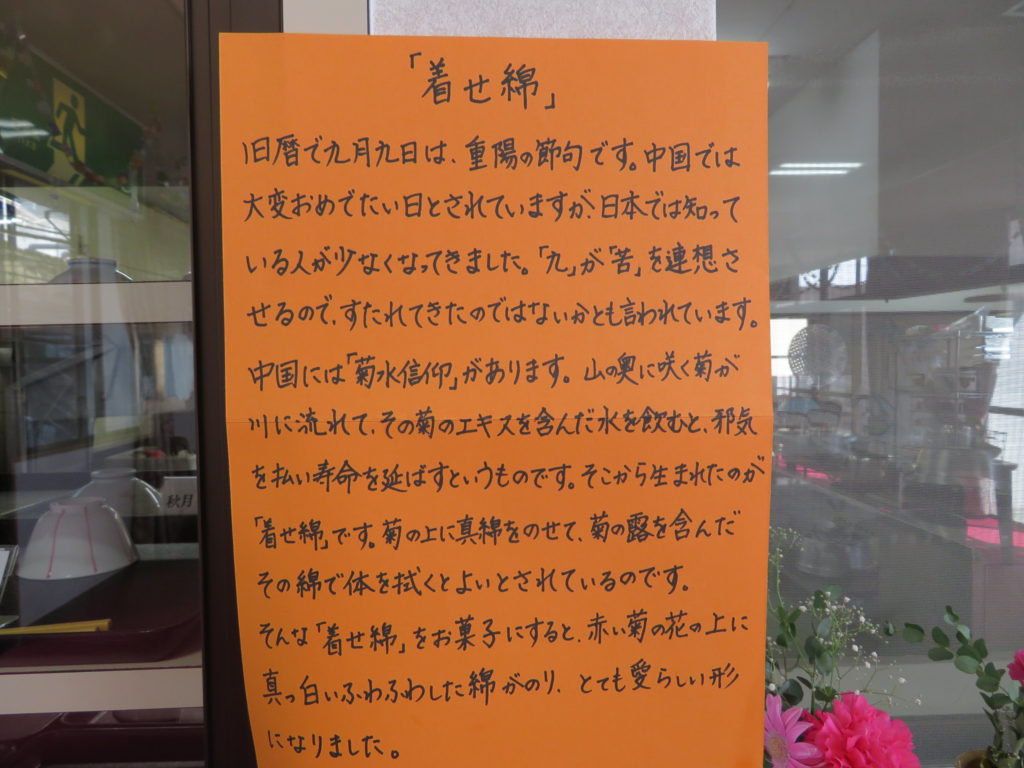 「着せ綿」
旧暦で九月九日は、重陽の節句です。中国では
大変おめでたい日とされていますが、日本では知って
いる人が少なくなってきました。「九」が「苦」を連想さ
せるので、すたれてきたのではないかとも言われています。
中国には「菊水信仰」があります。山の奥に咲く菊が
川に流れて、その菊のエキスを含んだ水を飲むと、邪気
を払い寿命を延ばすというものです。そこから生まれたのが
「着せ綿」です。菊の上に真綿をのせて、菊の露を含んだ
その綿で体を拭くとよいとされているのです。
そんな「着せ綿」をお菓子にすると、赤い菊の花の上に
真っ白いふわふわした綿がのり、とても愛らしい形
になりました。
秋月